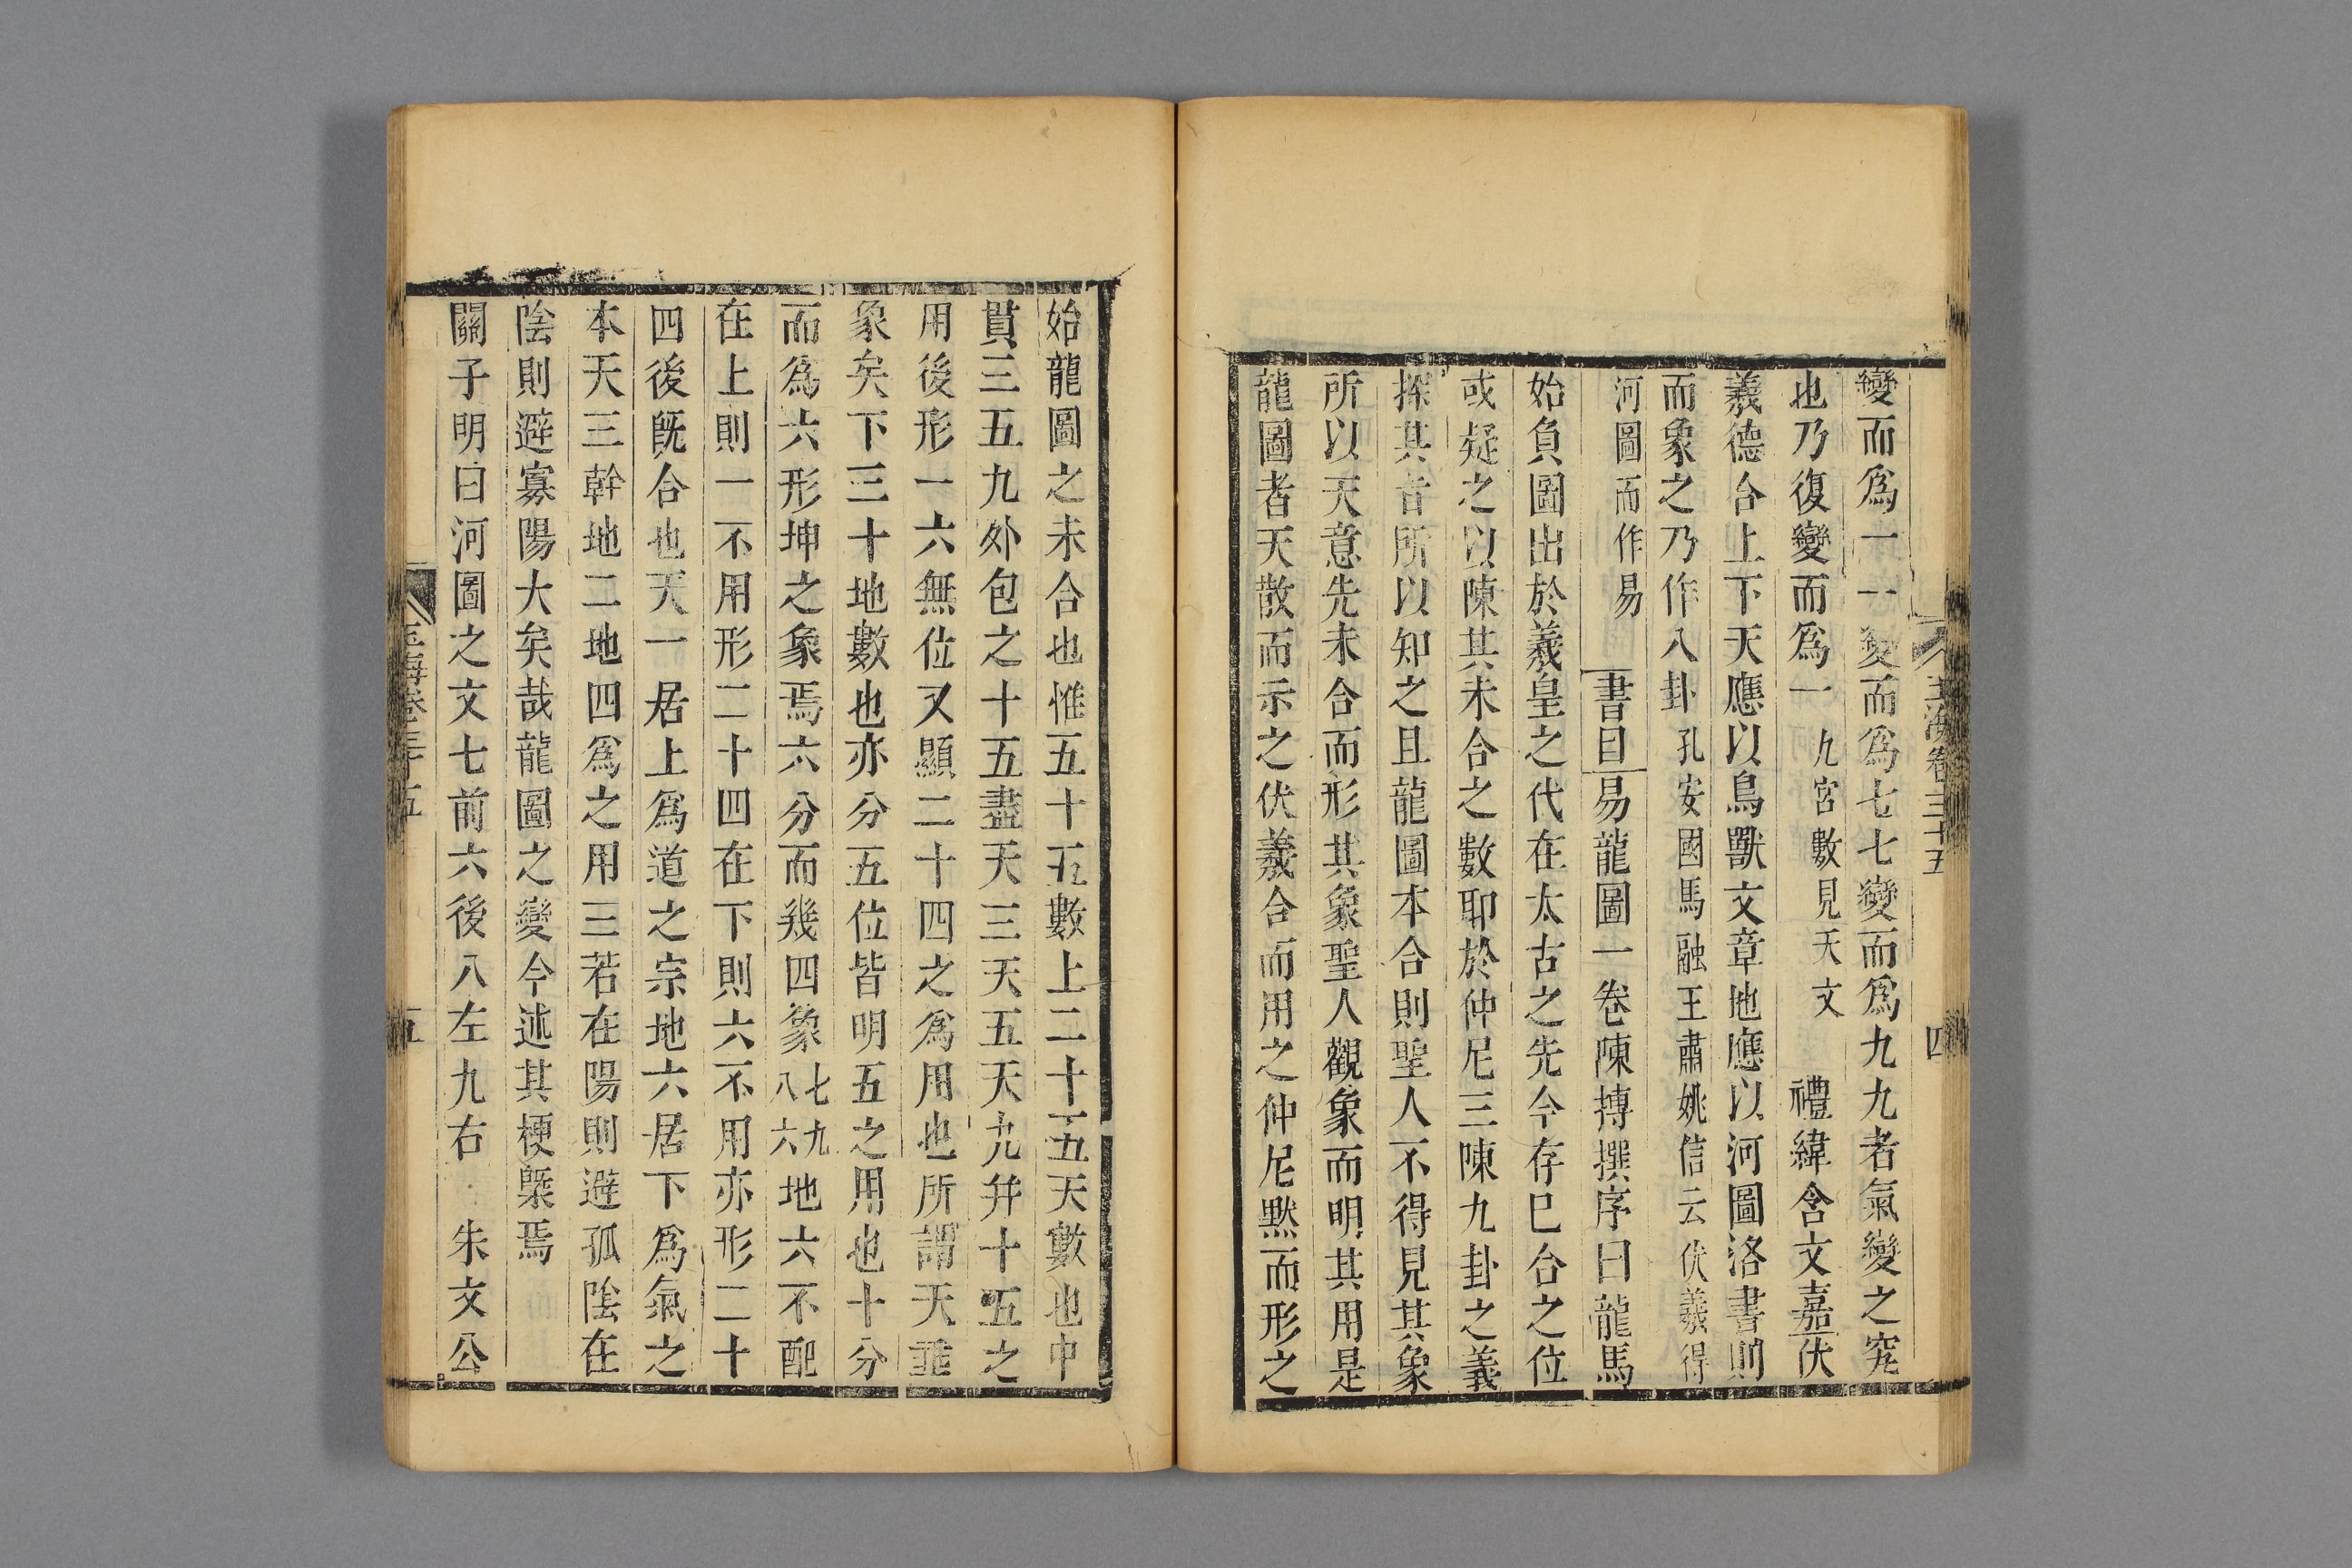 玉海卷三十五
四
變而爲一一變而爲七七變而爲九九者氣變之究
也乃復變而爲一九宮數見天文 禮緯含文嘉伏
羲德合上下天應以鳥獸文章地應以河圖洛書則
而象之乃作八卦孔安國馬融王肅姚信云伏羲得
河圖而作易 書目易龍圖一卷陳摶撰序曰龍馬
始負圖出於羲皇之代在太古之先今存巳合之位
或疑之以陳其未合之數耶於仲尼三陳九卦之義
探其旨所以知之且龍圖本合則聖人不得見其象
所以天意先未合而形其象聖人觀象而明其用是
龍圖者天散而示之伏羲合而用之仲尼默而形之
始龍圖之未合也惟五十五數上二十五天數也中
貫三五九外包之十五盡天三天五天九并十五之
用後形一六無位又顯二十四之爲用也所謂天垂
象矣下三十地數也亦分五位皆明五之用也十分
而爲六形坤之象焉六分而幾四象七九八六地六不配
在上則一不用形二十四在下則六不用亦形二十
四後旣合也天一居上爲道之宗地六居下爲氣之
本天三幹地二地四爲之用三若在陽則避孤陰在
陰則避寡陽大矣哉龍圖之變今述其梗槩焉
關子明曰河圖之文七前六後八左九右 朱文公
玉海卷三十五
五